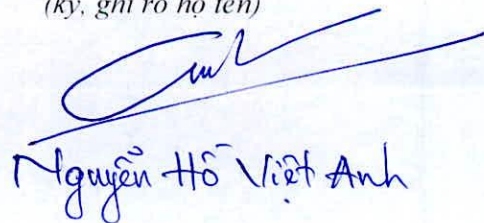 (ký, ghi rõ họ tên)
Nguyễn Hồ Việt Anh